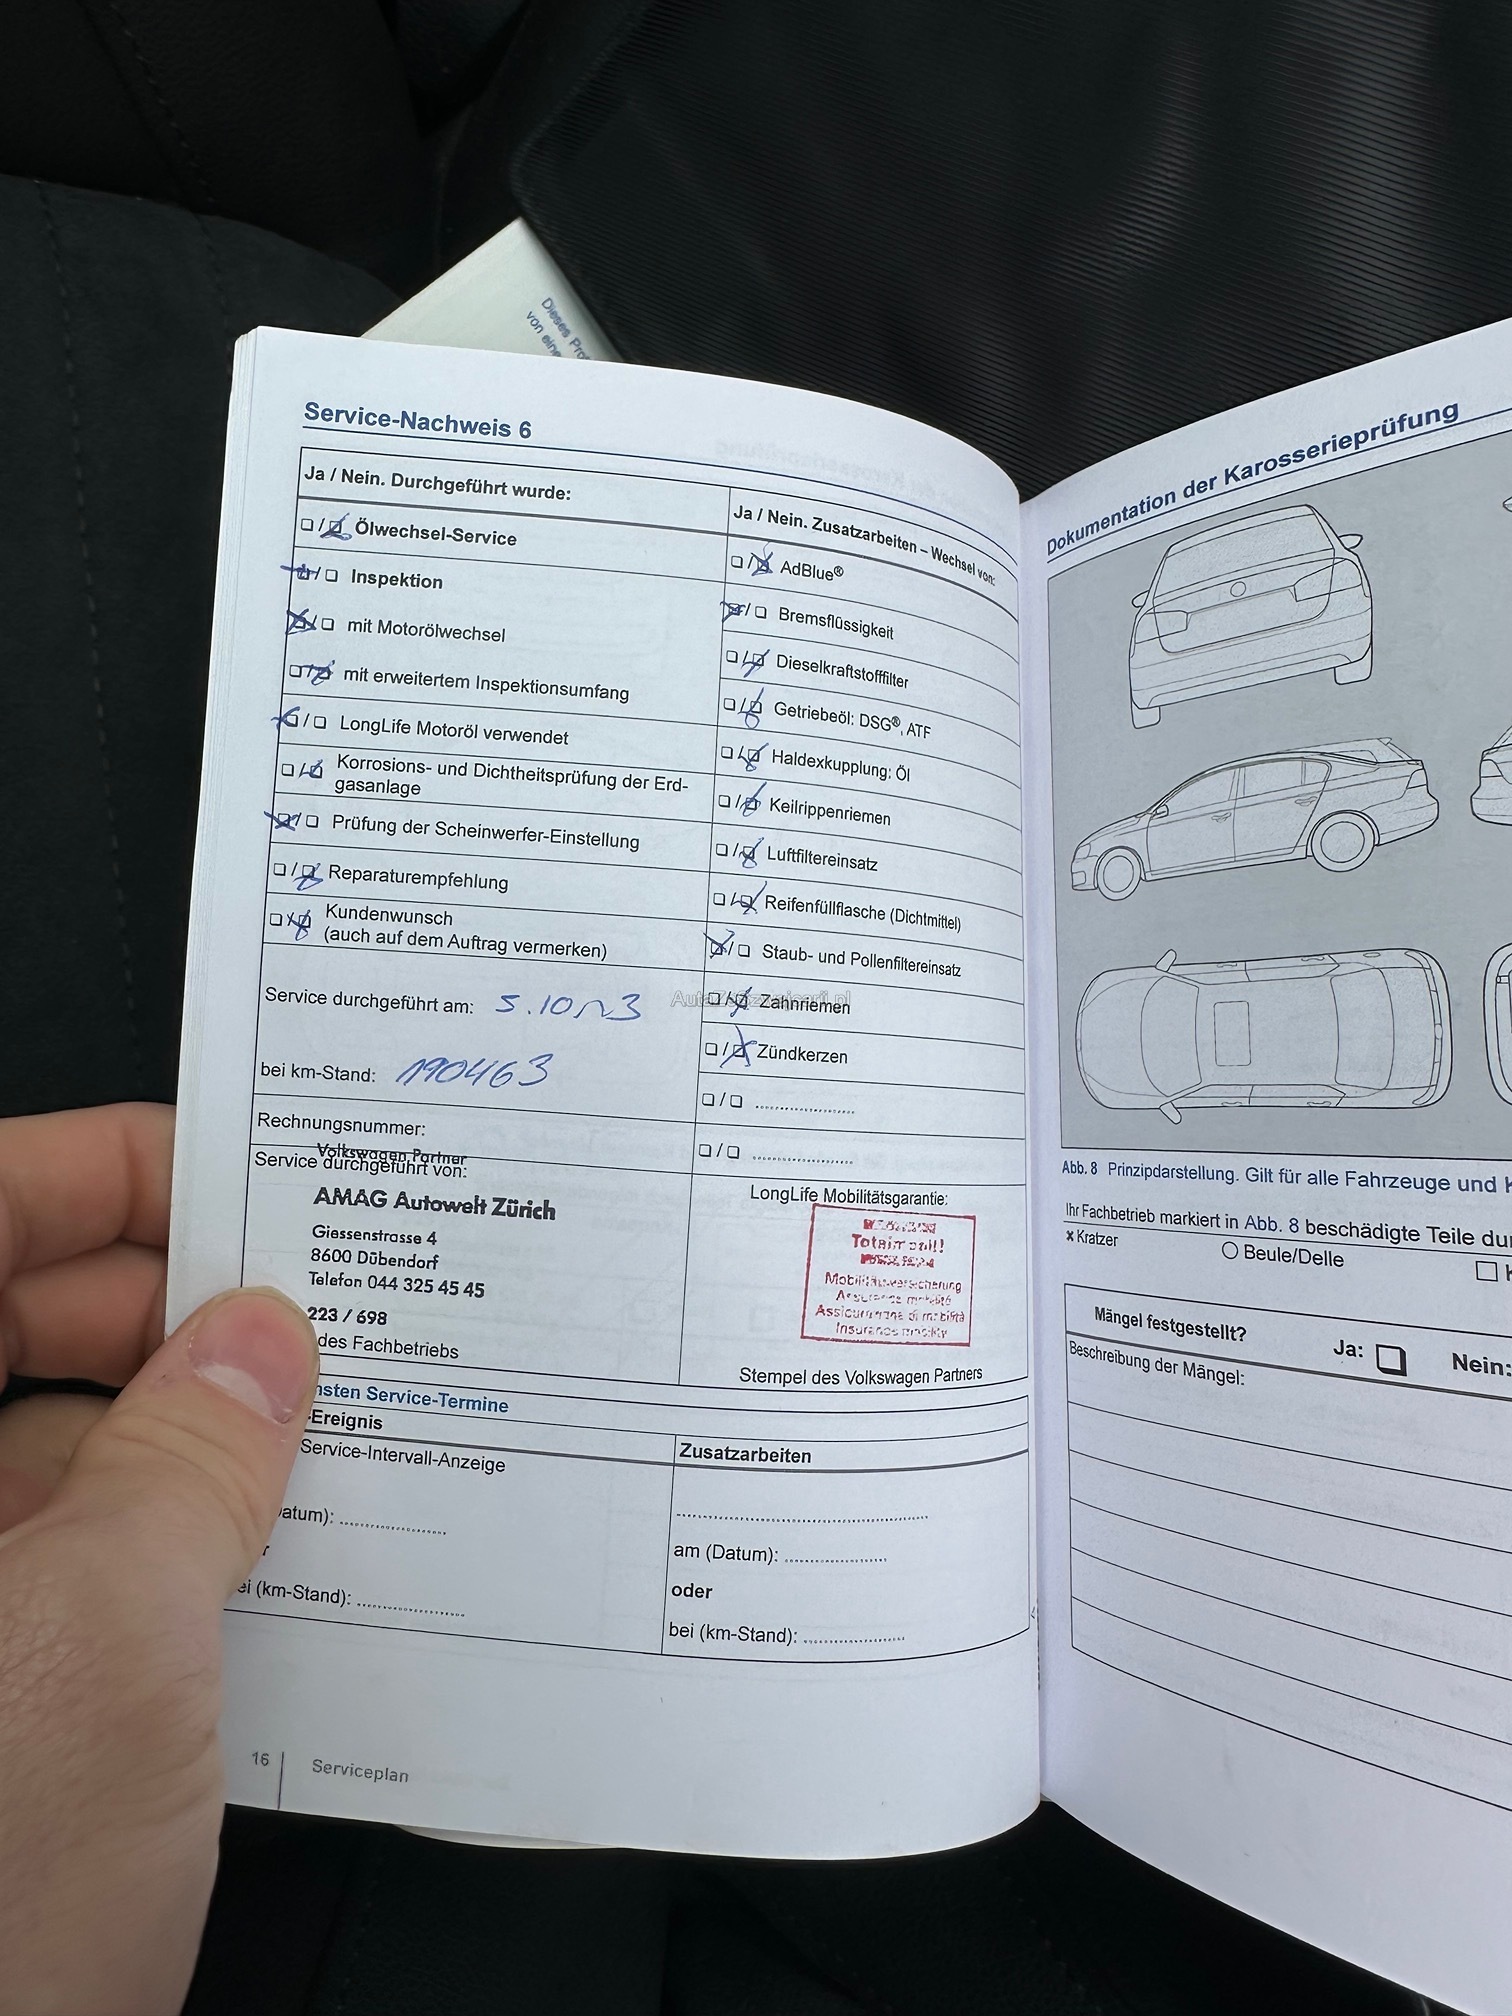 Dieses
von
Service-Nachweis 6
Ja / Nein. Durchgeführt wurde:
❏ / ❏ Ölwechsel-Service
❏ / ❏ Inspektion
❏ / ❏ mit Motorölwechsel
❏ / ❏ mit erweitertem Inspektionsumfang
❏ / ❏ LongLife Motoröl verwendet
❏ / ❏ Korrosions- und Dichtheitsprüfung der Erd-
gasanlage
❏ / ❏ Prüfung der Scheinwerfer-Einstellung
❏ / ❏ Reparaturempfehlung
❏ / ❏ Kundenwunsch
(auch auf dem Auftrag vermerken)
Service durchgeführt am: 5.10
bei km-Stand: 190463
Rechnungsnummer:
Volkswagen Partner
Service durchgeführt von:
AMAG Autowelt Zürich
Giessenstrasse 4
8600 Dübendorf
Telefon 044 325 45 45
223 / 698
des Fachbetriebs
Ja / Nein. Zusatzarbeiten – Wechsel von:
❏ / ❏ AdBlue®
❏ / ❏ Bremsflüssigkeit
❏ / ❏ Dieselkraftstofffilter
❏ / ❏ Getriebeöl: DSG®, ATF
❏ / ❏ Haldexkupplung: Öl
❏ / ❏ Keilrippenriemen
❏ / ❏ Luftfiltereinsatz
❏ / ❏ Reifenfüllflasche (Dichtmittel)
❏ / ❏ Staub- und Pollenfiltereinsatz
❏ / ❏ Zahnriemen
❏ / ❏ Zündkerzen
❏ / ❏ ....................
❏ / ❏ ....................
LongLife Mobilitätsgarantie:
Totalmobil!
Mobilitätsversicherung
Assurance mobilité
Assicurazione di mobilità
Insurance mobility
Stempel des Volkswagen Partners
nsten Service-Termine
-Ereignis
Service-Intervall-Anzeige
atum): ....................
r
ei (km-Stand): ....................
Zusatzarbeiten
..................................................
am (Datum): ....................
oder
bei (km-Stand): ....................
16 Serviceplan
Dokumentation der Karosserieprüfung
Abb. 8 Prinzipdarstellung. Gilt für alle Fahrzeuge und
Ihr Fachbetrieb markiert in Abb. 8 beschädigte Teile
× Kratzer
○ Beule/Delle
Mängel festgestellt? Ja: ❏ Nein:
Beschreibung der Mängel: